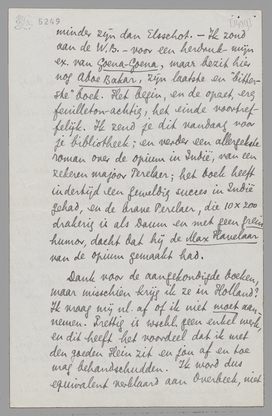 5249
minder zijn dan Elsschot. — Ik zond
aan de W.B. – voor een herdruk – mijn
ex. van Goena-Goena, maar bezit hier
nog Aboe Bakar, zijn laatste en "bitter-
ste" boek. Het begin, en de opzet, erg
feuilleton-achtig, het einde voortref-
felijk. Ik zend je dit vandaag voor
je bibliotheek; en verder een allergekste
roman over de opium in Indië, van een
zekeren majoor Perelaer; het boek heeft
indertijd een geweldig succes in Indië
gehad, en de brave Perelaer, die 10 x 200
drakerig is als Daum en met geen grein
humor, dacht dat hij de Max Havelaar
van de opium gemaakt had.
Dank voor de aangekondigde boeken,
maar misschien krijg ik ze in Holland?
Ik vraag mij nl. af of ik niet moet aan-
nemen. Prettig is wschl. geen enkel werk,
en dit heeft het voordeel dat ik met
den goeden Hein zit en jou af en toe
mag behandschudden. Ik word dus
equivalent verklaard aan Overbeek, niet